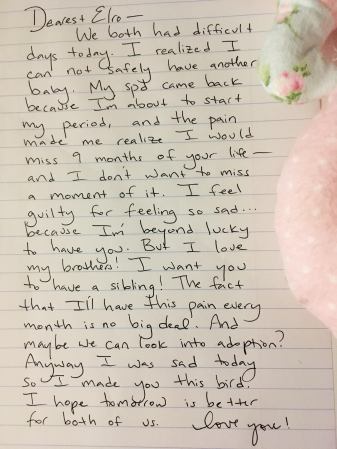 Dearest Elro —
We both had difficult
days today. I realized I
can not safely have another
baby. My spd came back
because I'm about to start
my period, and the pain
made me realize I would
miss 9 months of your life —
and I don't want to miss
a moment of it. I feel
guilty for feeling so sad...
because I'm beyond lucky
to have you. But I love
my brothers! I want you
to have a sibling! The fact
that I'll have this pain every
month is no big deal. And
maybe we can look into adoption?
Anyway I was sad today
so I made you this bird.
I hope tomorrow is better
for both of us. love you!